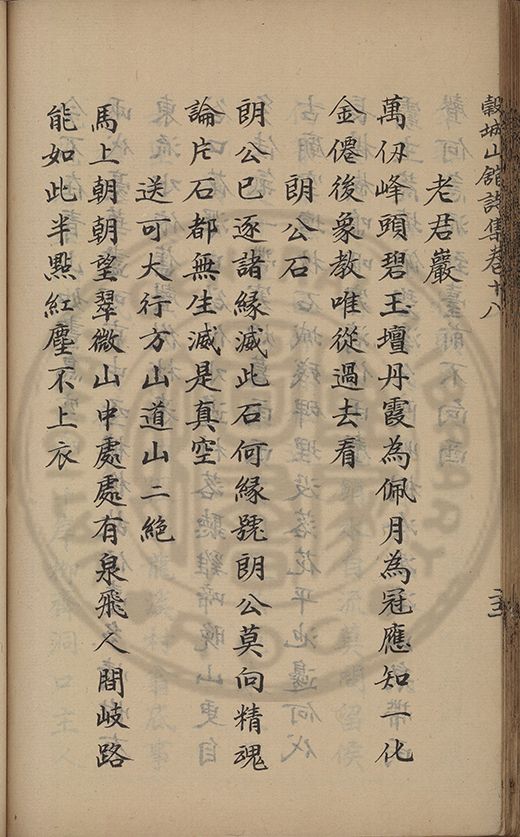 穀城山館詩集卷十八
老君巖
萬仭峰頭碧玉壇丹霞為佩月為冠應知一化
金僊後象教唯從過去看
朗公石
朗公已逐諸緣滅此石何緣號朗公莫向精魂
論片石都無生滅是真空
送可大行方山道山二絶
馬上朝朝望翠微山中處處有泉飛人間岐路
能如此半點紅塵不上衣